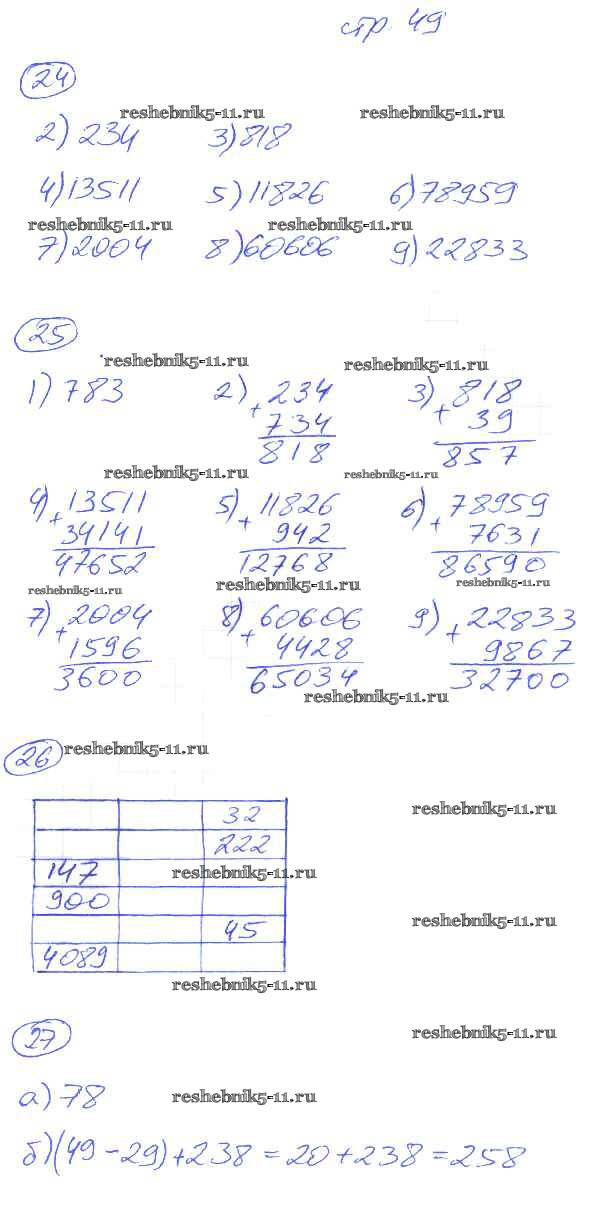 стр. 49
24
reshebnik5-11.ru reshebnik5-11.ru
2) 234 3) 818
4) 13511 5) 11826 6) 78959
reshebnik5-11.ru reshebnik5-11.ru
7) 2004 8) 60606 9) 22833
25
reshebnik5-11.ru reshebnik5-11.ru
1) 783 2) + 234 3) + 818
734 39
818 857
reshebnik5-11.ru reshebnik5-11.ru
4) + 13511 5) + 11826 6) + 78959
34141 942 7631
47652 12768 86590
reshebnik5-11.ru reshebnik5-11.ru reshebnik5-11.ru
7) + 2004 8) + 60606 9) + 22833
1596 4428 9867
3600 65034 32700
reshebnik5-11.ru
26 reshebnik5-11.ru
32 reshebnik5-11.ru
222
147 reshebnik5-11.ru
900 reshebnik5-11.ru
45
4089
reshebnik5-11.ru
27 reshebnik5-11.ru
а) 78 reshebnik5-11.ru
б) (49 - 29) + 238 = 20 + 238 = 258